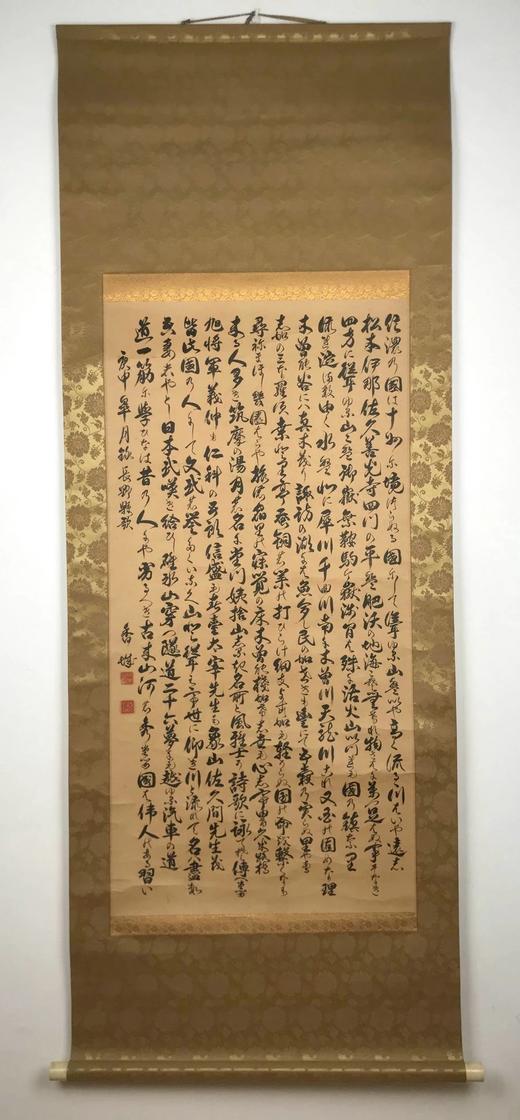 信濃の国は十州尓境つらぬる国尓して聳ゆる山盤いや高く流る川はいや遠し
松本伊那佐久善光寺四門の平盤肥沃の地海こそ奈けれ物さわに万つ足らぬ事そなき
四方に聳ゆる山々盤御嶽乗鞍駒ヶ嶽浅間は殊に活火山いつれも国の鎮なり
流れ淀ま須ゆく水盤北に犀川千曲川南に木曽川天龍川これ又国の固めな理
木曽能谷には真木茂り諏訪の湖には魚多し民の加せきも豊にて五穀の実らぬ里やある
志加のみなら須桑とりて蚕飼の業の打ひらけ細きよすかも軽からぬ国の命を繋くなり
尋祢まほしき園はらや旅のやとりの寝覚の床木曽の棧加けし世も心してゆけ久米路橋
来る人多き筑摩の湯月の名に立つ姨捨山しるき名所と風雅士か詩歌に詠てそ傳へたる
旭将軍義仲も仁科の五郎信盛も春臺太宰先生も象山佐久間先生も
皆此国の人にして文武の誉たくいなく山と聳えて世に仰き川と流れて名は盡す
吾妻はやとし日本武嘆き給ひし碓氷山穿つ隧道二十六夢にも越ゆる汽車の道
道一筋尓学ひなは昔の人にや劣るへき古来山河の秀てたる国は偉人のある習い
庚申皐月録長野縣歌